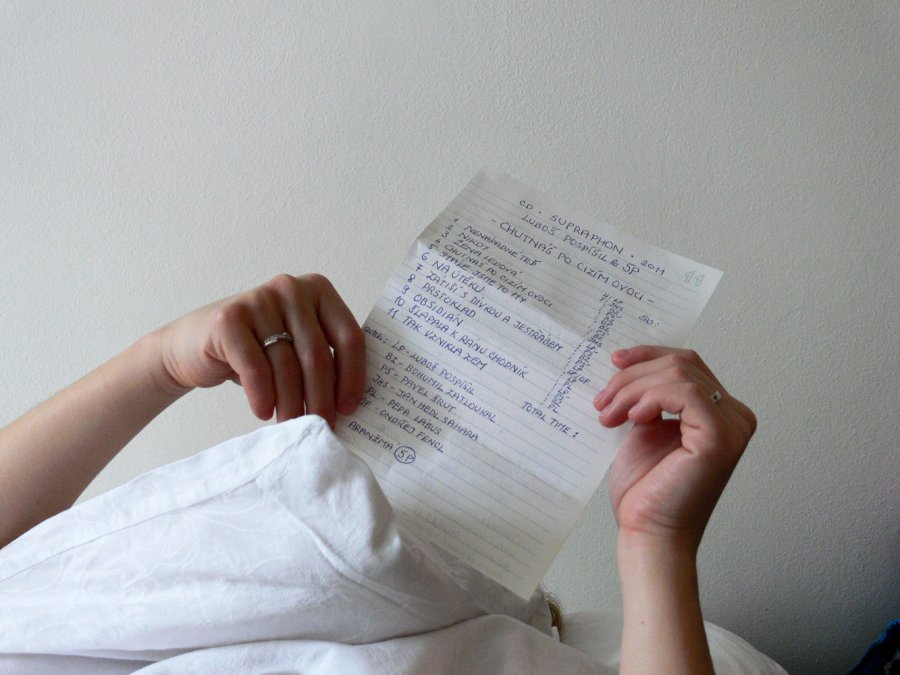 CD · SUPRAPHON · 2011
LUBOŠ POSPÍŠIL & 5P
- CHUTNÁŠ PO CIZÍM OVOCI -
ČAS:
1 NENÁPADNĚ TEĎ
2 NIKDY
3 ŽENA LEDOVÁ
4 CHUTNÁŠ PO CIZÍM OVOCI
5 STÁLE JSME TO MY
6 NA ÚTĚKU
7 ZÁTIŠÍ S DÍVKOU A JESTŘÁBEM
8 PRSTOKLAD
9 OBSIDIÁN
10 ŠLAPALA K RÁNU CHODNÍK
11 TAK VZNIKLA ZEM
TOTAL TIME:
AUTOŘI: LP - LUBOŠ POSPÍŠIL
BZ - BOHUMIL ZATLOUKAL
PŠ - PAVEL ŠRUT
JHS - JAN HEDL SAHARA
PL - PEPA LÁBUS
OF - ONDŘEJ FENCL
ARANŽMÁ 5P